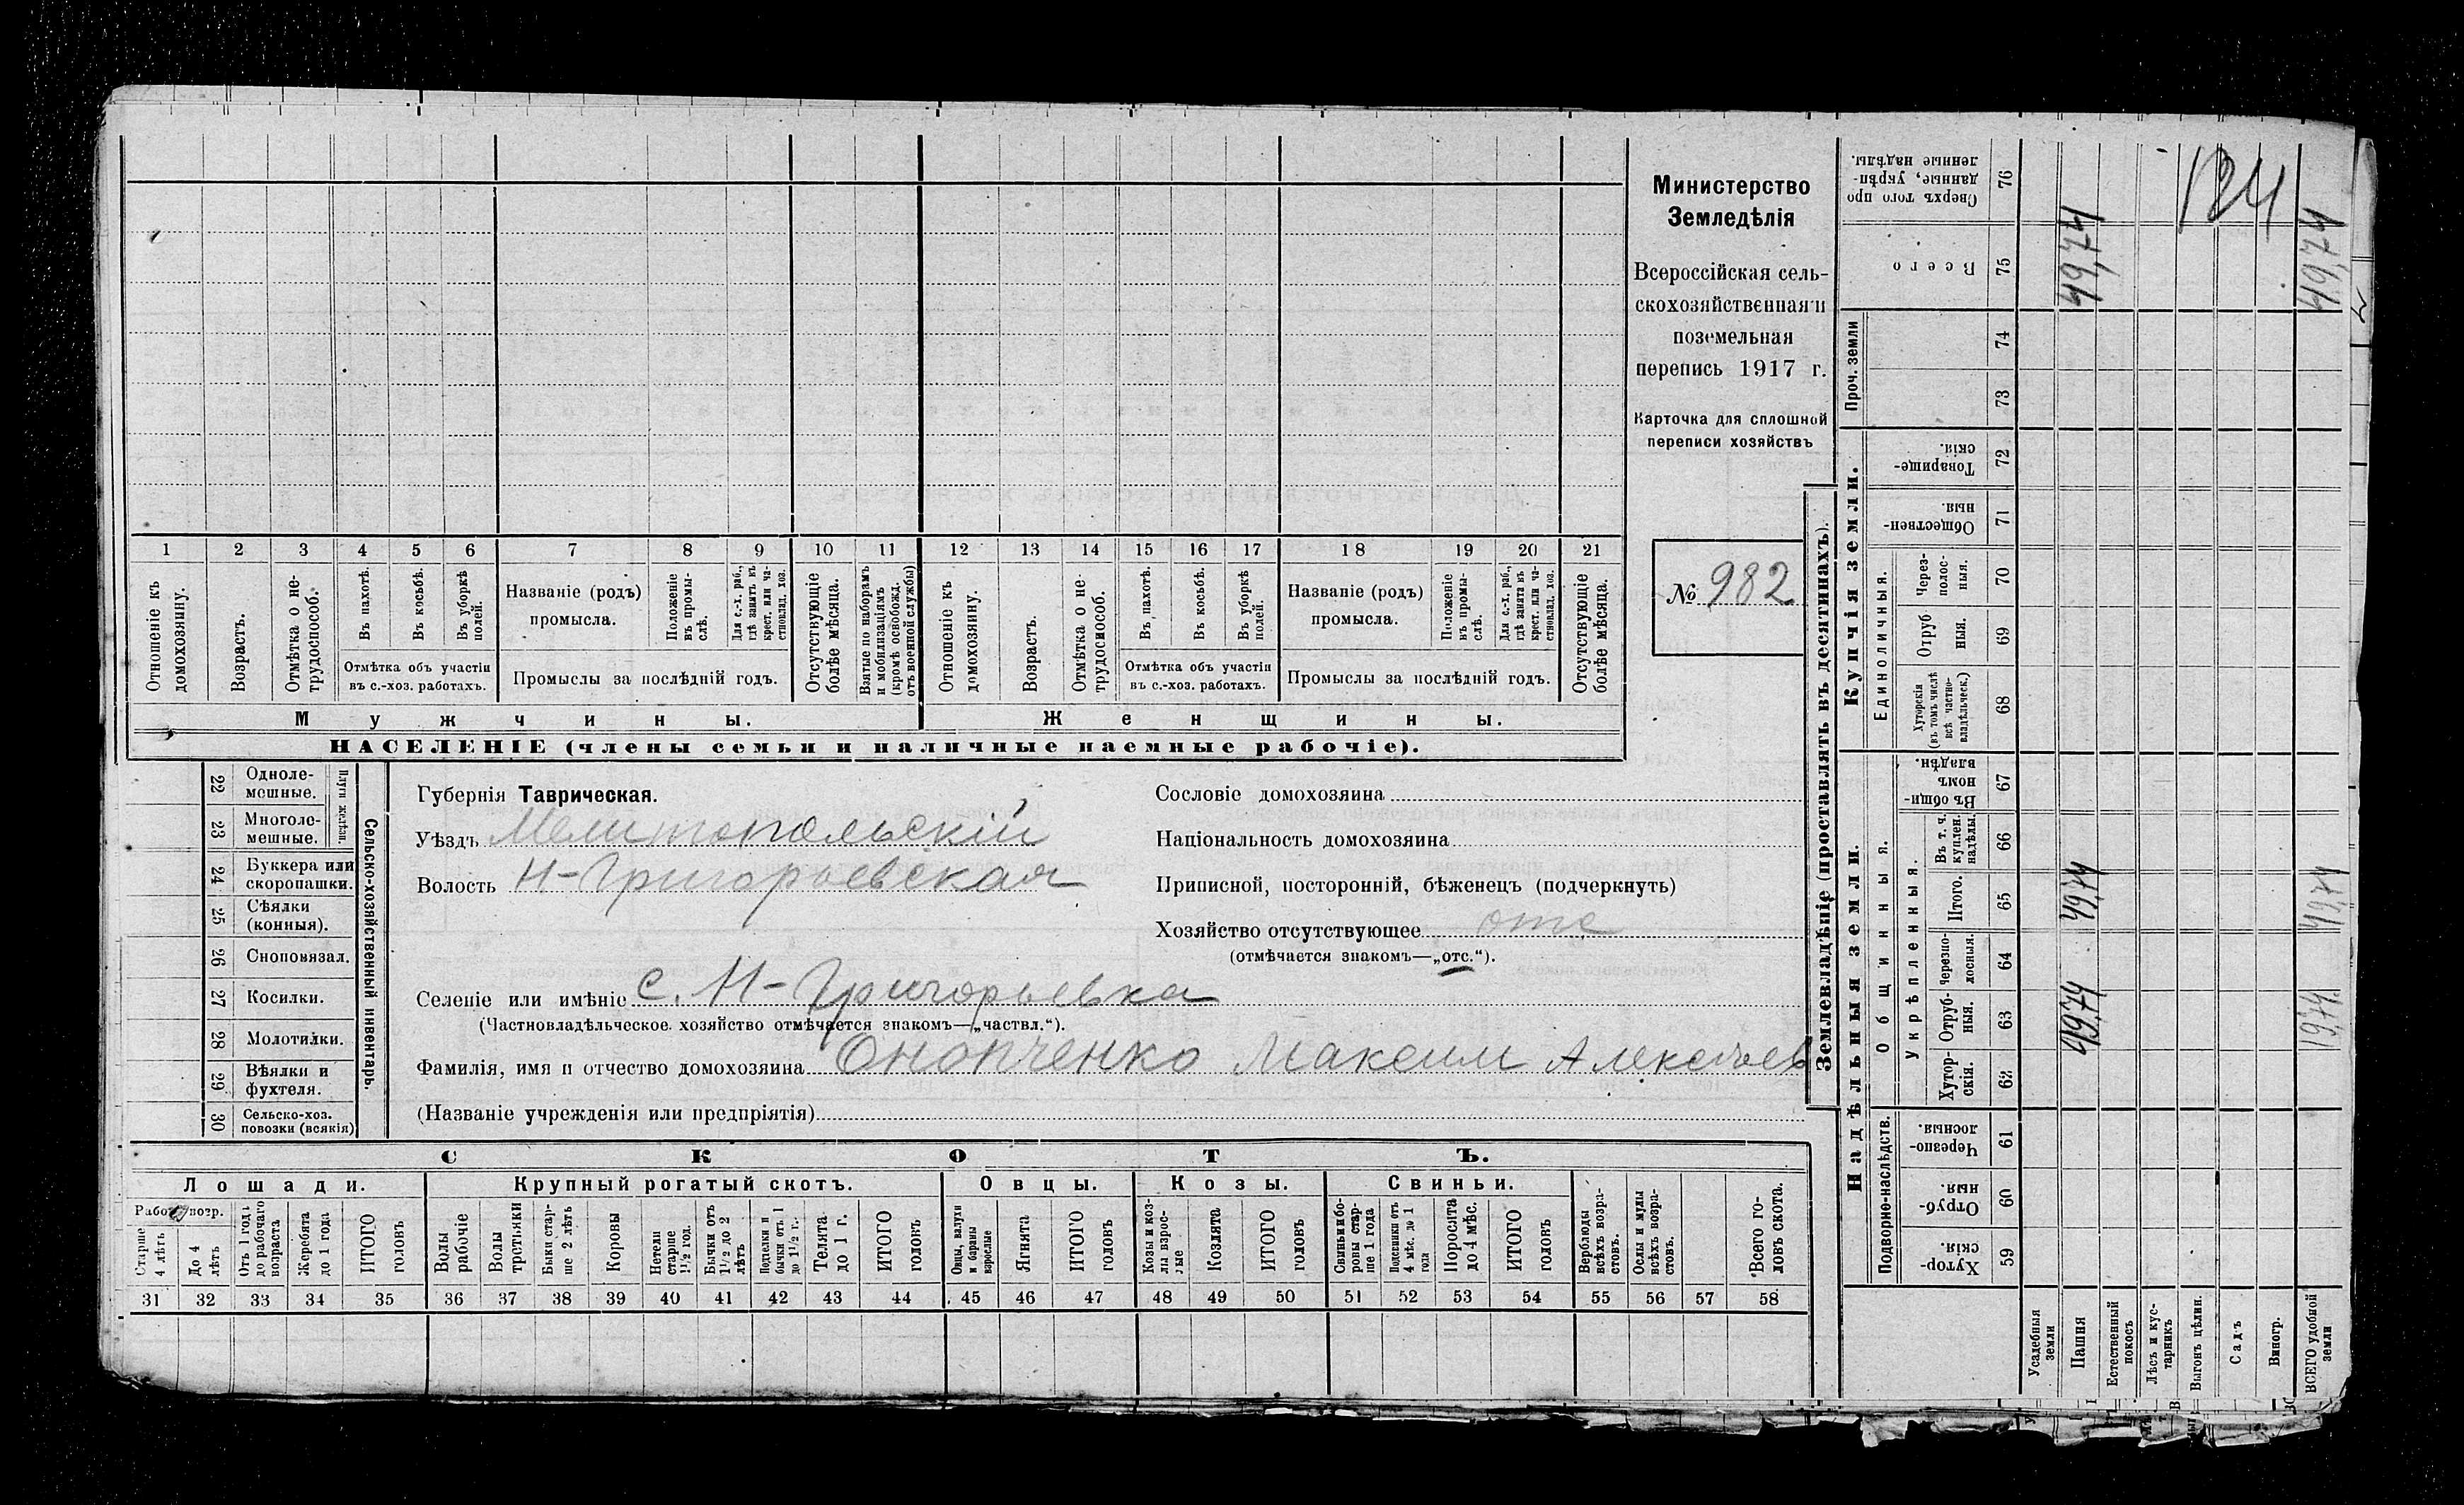 Министерство
Земледѣлія
Всероссійская сель-
скохозяйственная и
поземельная
перепись 1917 г.
Карточка для сплошной
переписи хозяйствъ
№ 982
1 2 3 4 5 6 7 8 9 10 11 12 13 14 15 16 17 18 19 20 21
Отношеніе къ домохозяину.
Возрастъ.
Отмѣтка о не-трудоспособ.
Въ пахотѣ.
Въ косьбѣ.
Въ уборкѣ полей.
Отмѣтка объ участіи
въ с.-хоз. работахъ.
Названіе (родъ)
промысла.
Положеніе въ промы-слѣ.
Для с.-х. раб., гдѣ занятъ въ крест. или ча-стновлад. хоз.
Промыслы за послѣдній годъ.
Отсутствующіе болѣе мѣсяца.
Взятые по наборамъ и мобилизаціямъ (кромѣ освобожд. отъ военной службы)
Отношеніе къ домохозяину.
Возрастъ.
Отмѣтка о не-трудоспособ.
Въ пахотѣ.
Въ косьбѣ.
Въ уборкѣ полей.
Отмѣтка объ участіи
въ с.-хоз. работахъ.
Названіе (родъ)
промысла.
Положеніе въ промы-слѣ.
Для с.-х. раб., гдѣ занята въ крест. или ча-стновлад. хоз.
Промыслы за послѣдній годъ.
Отсутствующіе болѣе мѣсяца.
Мужчины. Женщины.
НАСЕЛЕНІЕ (члены семьи и наличные наемные рабочіе).
22 Однолемешные.
23 Многолемешные.
Плуги желѣзн.
24 Буккера или скоропашки.
25 Сѣялки (конныя).
26 Сноповязал.
27 Косилки.
28 Молотилки.
29 Вѣялки и фухтеля.
30 Сельско-хоз. повозки (всякія)
Сельско-хозяйственный инвентарь.
Губернія Таврическая.
Уѣздъ Мелитопольскій
Волость Н-Григорьевская
Селеніе или имѣніе с. Н-Григорьевка
(Частновладѣльческое хозяйство отмѣчается знакомъ—„частвл.“).
Фамилія, имя и отчество домохозяина Онопченко Максим Алексѣев
(Названіе учрежденія или предпріятія)
Сословіе домохозяина
Національность домохозяина
Приписной, посторонній, бѣженецъ (подчеркнуть)
Хозяйство отсутствующее отс
(отмѣчается знакомъ—„отс.“).
СКОТЪ.
Лошади. Крупный рогатый скотъ. Овцы. Козы. Свиньи.
Старше 4 лѣтъ
До 4 лѣтъ
Отъ 1 года до рабочаго возраста
Жеребята до 1 года
ИТОГО головъ
Волы рабочіе
Волы третьяки
Быки стар-ше 2 лѣтъ
Коровы
Нетели старше 1½ год.
Бычки отъ 1½ до 2 лѣтъ
Подтелки и бычки отъ 1 до 1½ г.
Телята до 1 г.
ИТОГО головъ
Овцы, валухи и бараны взрослые
Ягнята
ИТОГО головъ
Козы и коз-лы взрос-лые
Козлята
ИТОГО головъ
Свиньи и бо-ровы стар-ше 1 года
Подсвинки отъ 4 мѣс. до 1 года
Поросята до 4 мѣс.
ИТОГО головъ
Верблюды всѣхъ возра-стовъ.
Ослы и мулы всѣхъ возра-стовъ.
Всего го-ловъ скота.
31 32 33 34 35 36 37 38 39 40 41 42 43 44 45 46 47 48 49 50 51 52 53 54 55 56 57 58
Землевладѣніе (проставлять въ десятинахъ).
Надѣльныя земли. Купчія земли. Проч. земли
Подворно-наслѣдств.
Общинныя.
Укрѣпленныя.
Единоличныя.
59 Хутор-скія.
60 Отруб-ныя.
61 Черезпо-лосныя.
62 Хутор-скія.
63 Отруб-ныя.
64 Черезпо-лосныя.
65 Итого.
66 Въ т. ч. куплен. надѣлы.
67 Въ общин-номъ владѣн.
68 Хуторскія (въ томъ числѣ всѣ частно-владѣльческ.)
69 Отруб ныя.
70 Черезполос-ныя.
71 Обществен-ныя.
72 Товарище-скія.
73
74
75 Всего
76 Сверхъ того про данные, укрѣп-ленные надѣлы.
Усадебныя земли
Пашня 49,74 49,74 49,74
Естественный покосъ
Лѣсъ и кус-тарникъ
Выгонъ цѣлин.
Садъ
Виногр.
ВСЕГО удобной земли 19,74 49,74 49,74
124